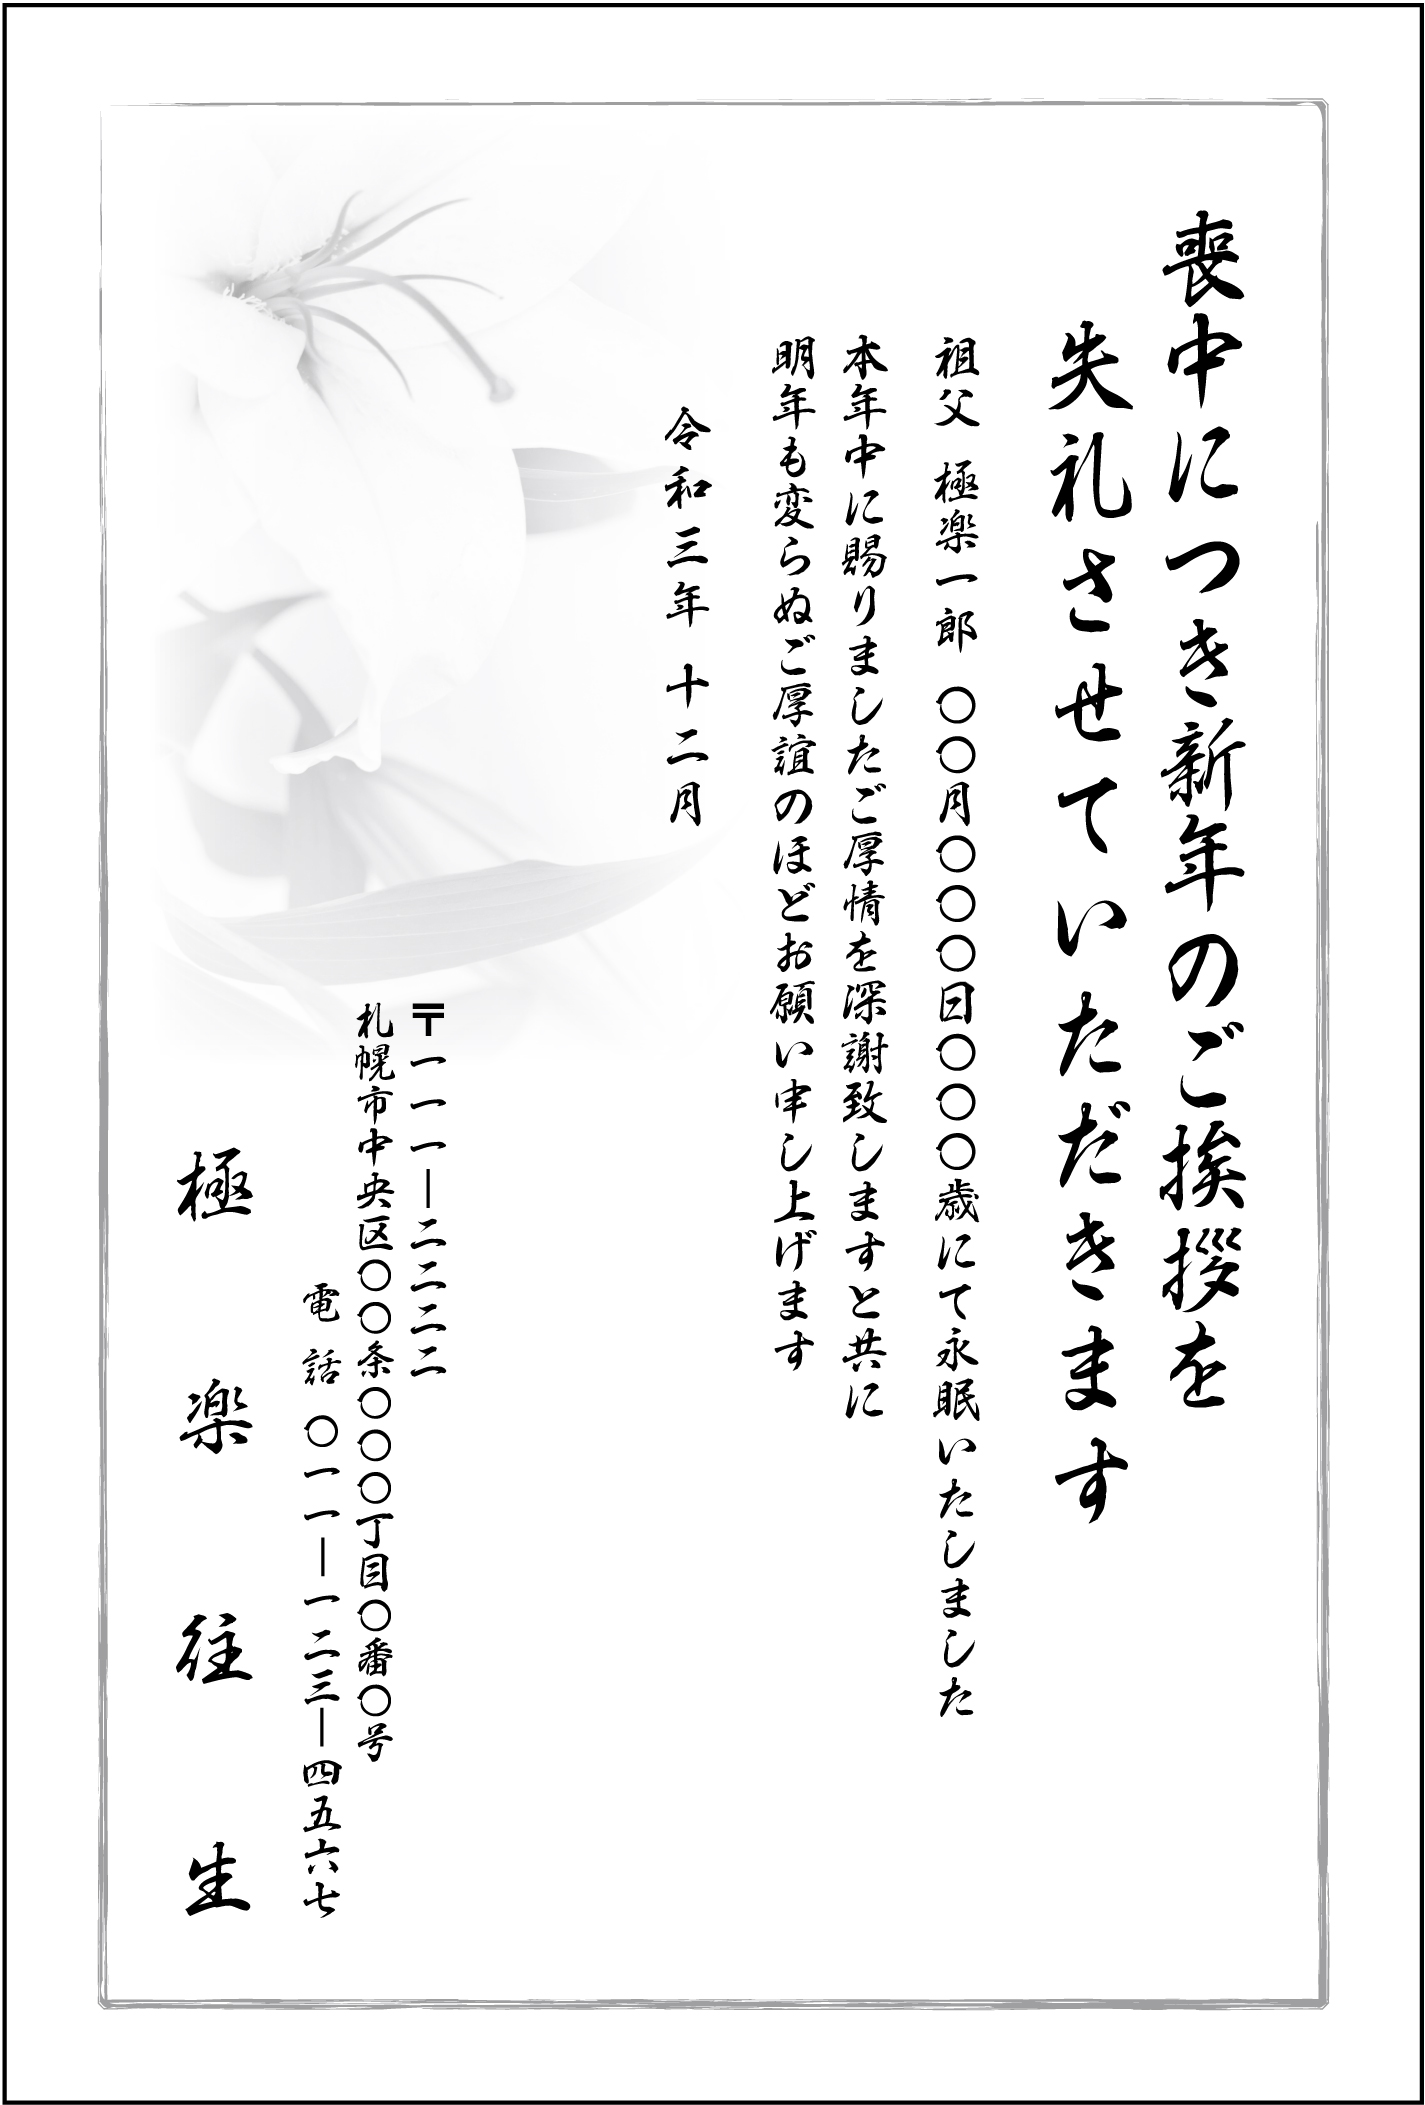 喪中につき新年のご挨拶を
失礼させていただきます
祖父 極楽一郎 〇〇月〇〇〇日〇〇〇歳にて永眠いたしました
本年中に賜りましたご厚情を深謝致しますと共に
明年も変らぬご厚誼のほどお願い申し上げます
令和三年 十二月
〒一一一―二二二二
札幌市中央区〇〇条〇〇〇丁目〇番〇号
電話 〇一一―一二三―四五六七
極楽往生